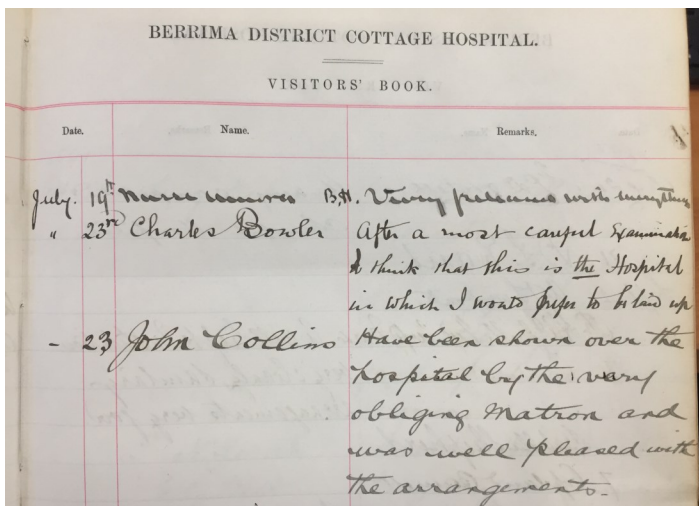 BERRIMA DISTRICT COTTAGE HOSPITAL.
VISITORS' BOOK.
Date. Name. Remarks.
July. 19th Nurse B.H. Very pleased with everything
" 23rd Charles Bowler After a most careful Examination
I think that this is the Hospital
in which I would prefer to be laid up
- 23 John Collins Have been shown over the
hospital by the very
obliging Matron and
was well pleased with
the arrangements.